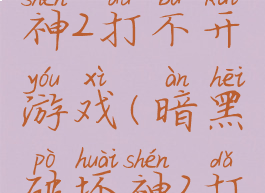 shén dǎ bù kāi
神2打不开
yóu xì àn hēi
游戏(暗黑
pò huài shén dǎ
破坏神2打